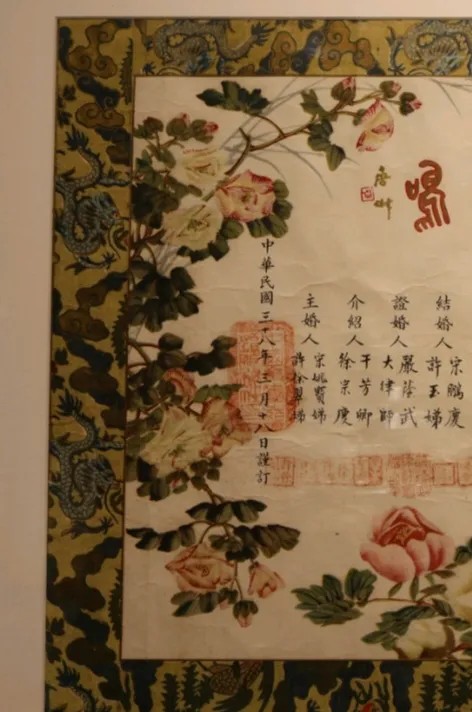 結婚人 宗鵬慶
許玉娣
證婚人 嚴蔭武
大律師
介紹人 干芳卿
徐宗慶
主婚人 宗姚賢娣
許徐翠娣
中華民國三十八年三月十八日謹訂